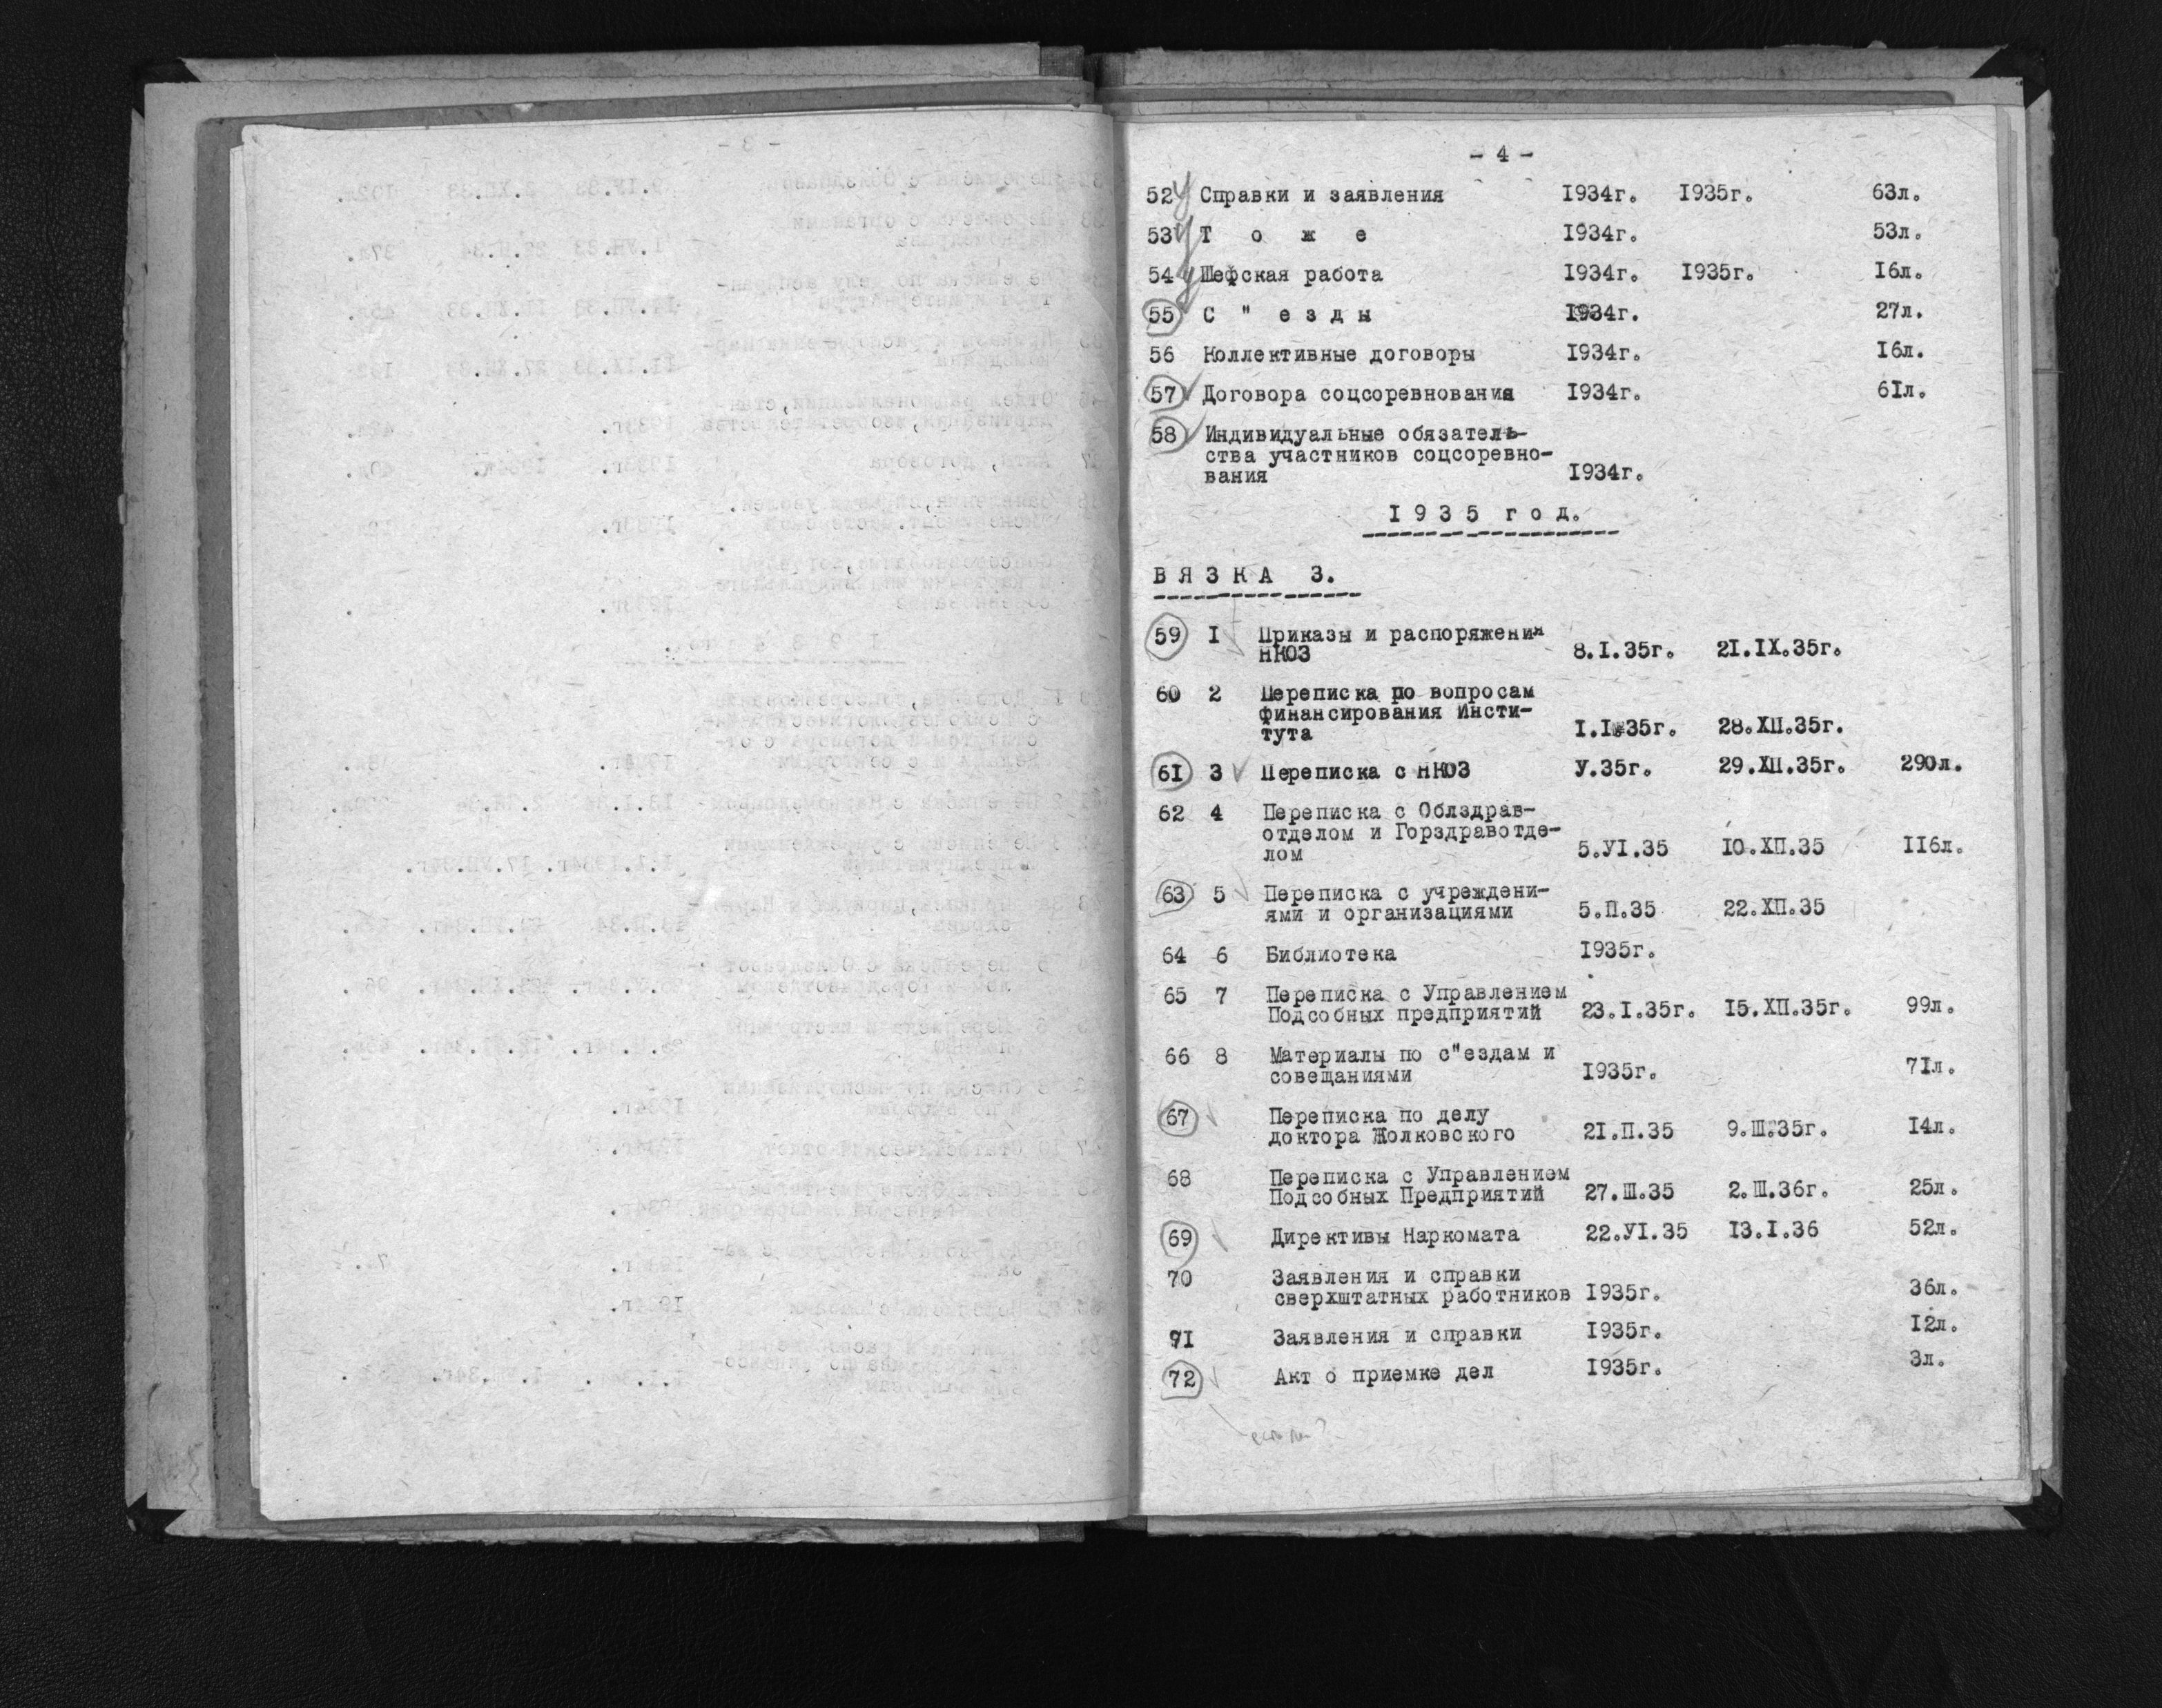 - 4 -
52 Справки и заявления 1934г. 1935г. 63л.
53 Т о ж е 1934г. 53л.
54 Шефская работа 1934г. 1935г. 16л.
55 С " е з д ы 1934г. 27л.
56 Коллективные договоры 1934г. 16л.
57 Договора соцсоревнования 1934г. 61л.
58 Индивидуальные обязатель-
ства участников соцсоревно-
вания 1934г.
1 9 3 5 г о д.
В Я З К А 3.
59 1 Приказы и распоряжения
НКОЗ 8.I.35г. 21.IX.35г.
60 2 Переписка по вопросам
финансирования Инсти-
тута 1.I.35г. 28.ХП.35г.
61 3 Переписка с НКОЗ У.35г. 29.ХП.35г. 290л.
62 4 Переписка с Облздрав-
отделом и Горздравотде-
лом 5.УI.35 10.ХП.35 116л.
63 5 Переписка с учреждени-
ями и организациями 5.П.35 22.ХП.35
64 6 Библиотека 1935г.
65 7 Переписка с Управлением
Подсобных предприятий 23.I.35г. 15.ХП.35г. 99л.
66 8 Материалы по с"ездам и
совещаниями 1935г. 71л.
67 Переписка по делу
доктора Жолковского 21.П.35 9.Ш.35г. 14л.
68 Переписка с Управлением
Подсобных Предприятий 27.Ш.35 2.Ш.36г. 25л.
69 Директивы Наркомата 22.УI.35 13.I.36 52л.
70 Заявления и справки
сверхштатных работников 1935г. 36л.
71 Заявления и справки 1935г. 12л.
72 Акт о приемке дел 1935г. 3л.